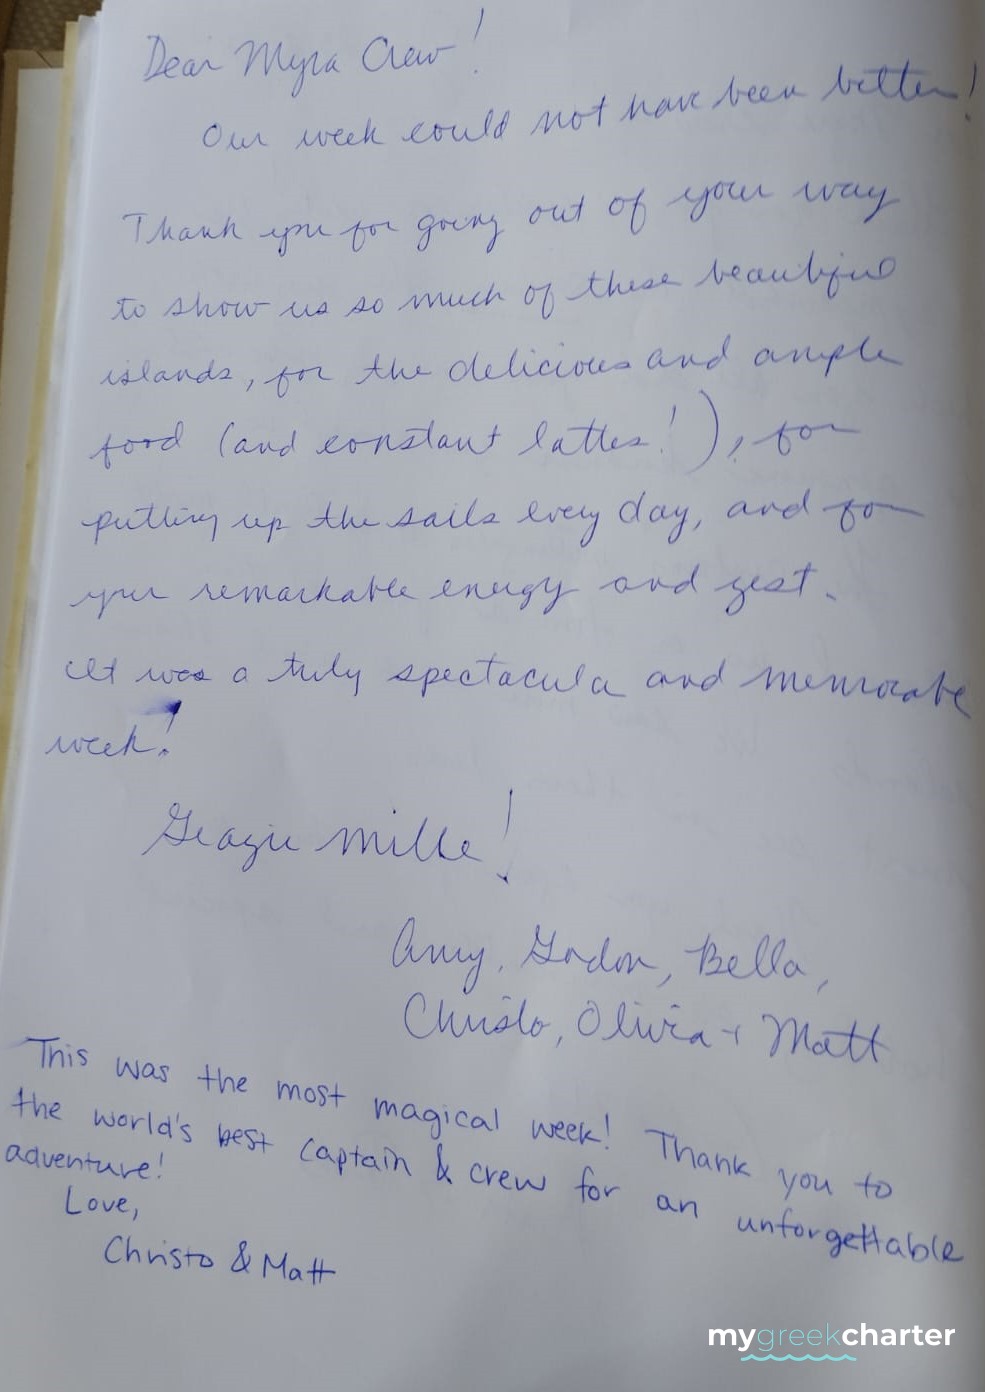 Dear Myra Crew!
Our week could not have been better!
Thank you for going out of your way
to show us so much of these beautiful
islands, for the delicious and ample
food (and constant lattes!), for
putting up the sails every day, and for
your remarkable energy and zest.
It was a truly spectacular and memorable
week!
Grazie mille!
Amy, Gordon, Bella,
Christo, Olivia + Matt
This was the most magical week! Thank you to
the world's best captain & crew for an unforgettable
adventure!
Love,
Christo & Matt
mygreekcharter